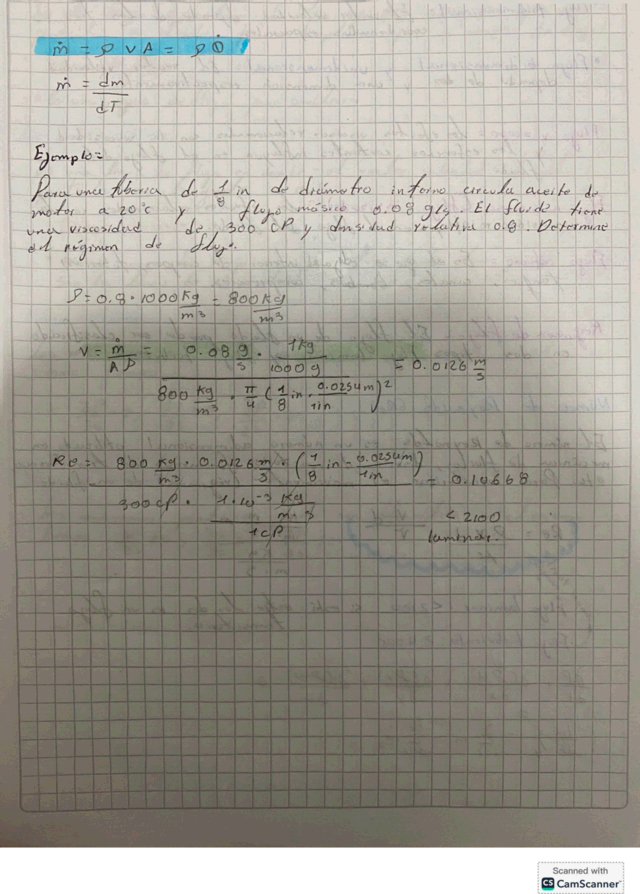 ṁ = ρ v A = ρ Q̇
ṁ = dm
dT
Ejemplo=
Para una tuberia de 1/8 in de diámetro interno circula aceite de
motor a 20°c y flujo másico 0.08 g/s. El fluido tiene
una viscosidad de 300 cP y densidad relativa 0.8. Determine
el régimen de flujo.
ρ = 0.8 · 1000 Kg/m³ = 800 Kg/m³
v = ṁ/Aρ = 0.08 g/s · 1Kg/1000 g = 0.0126 m/s
800 Kg/m³ · π/4 (1/8 in · 0.0254m/1in)²
Re = 800 Kg/m³ · 0.0126 m/s · (1/8 in · 0.0254m/1in) = 0.10668
300cP · 1·10⁻³ Kg/m·s / 1cP
< 2100
laminar.
Scanned with
CS CamScanner